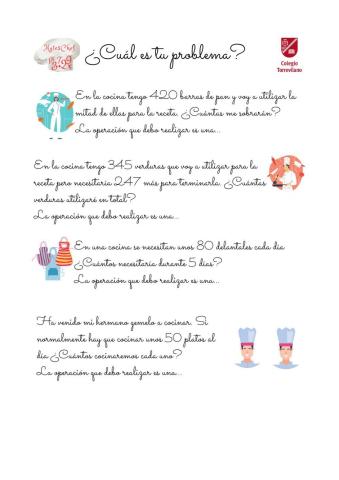 ¿Cuál es tu problema?
Colegio
Torrevilano
En la cocina tengo 420 barras de pan y voy a utilizar la
mitad de ellas para la receta. ¿Cuántas me sobrarán?
La operación que debo realizar es una...
En la cocina tengo 345 verduras que voy a utilizar para la
receta pero necesitaría 247 más para terminarla. ¿Cuántas
verduras utilizaré en total?
La operación que debo realizar es una...
En una cocina se necesitan unos 80 delantales cada día
¿Cuántos necesitaría durante 5 días?
La operación que debo realizar es una...
Ha venido mi hermano gemelo a cocinar. Si
normalmente hay que cocinar unos 50 platos al
día ¿Cuántos cocinaremos cada uno?
La operación que debo realizar es una...